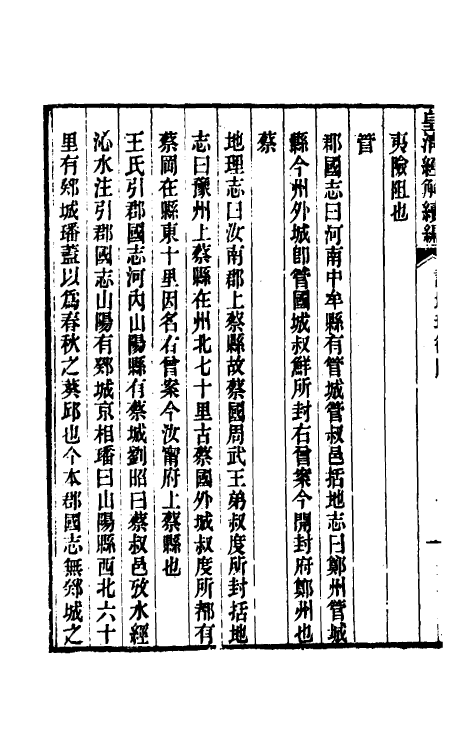 皇清經解續編
夷險阻也
管
郡國志曰河南中牟縣有管城管叔邑括地志曰鄭州管城
縣今州外城卽管國城叔鮮所封右曾案今開封府鄭州也
蔡
地理志曰汝南郡上蔡縣故蔡國周武王弟叔度所封括地
志曰豫州上蔡縣在州北七十里古蔡國外城叔度所都有
蔡岡在縣東十里因名右曾案今汝甯府上蔡縣也
王氏引郡國志河內山陽縣有蔡城劉昭曰蔡叔邑攷水經
沁水注引郡國志山陽有郟城京相璠曰山陽縣西北六十
里有郟城璠蓋以爲春秋之葵邱也今本郡國志無郟城之